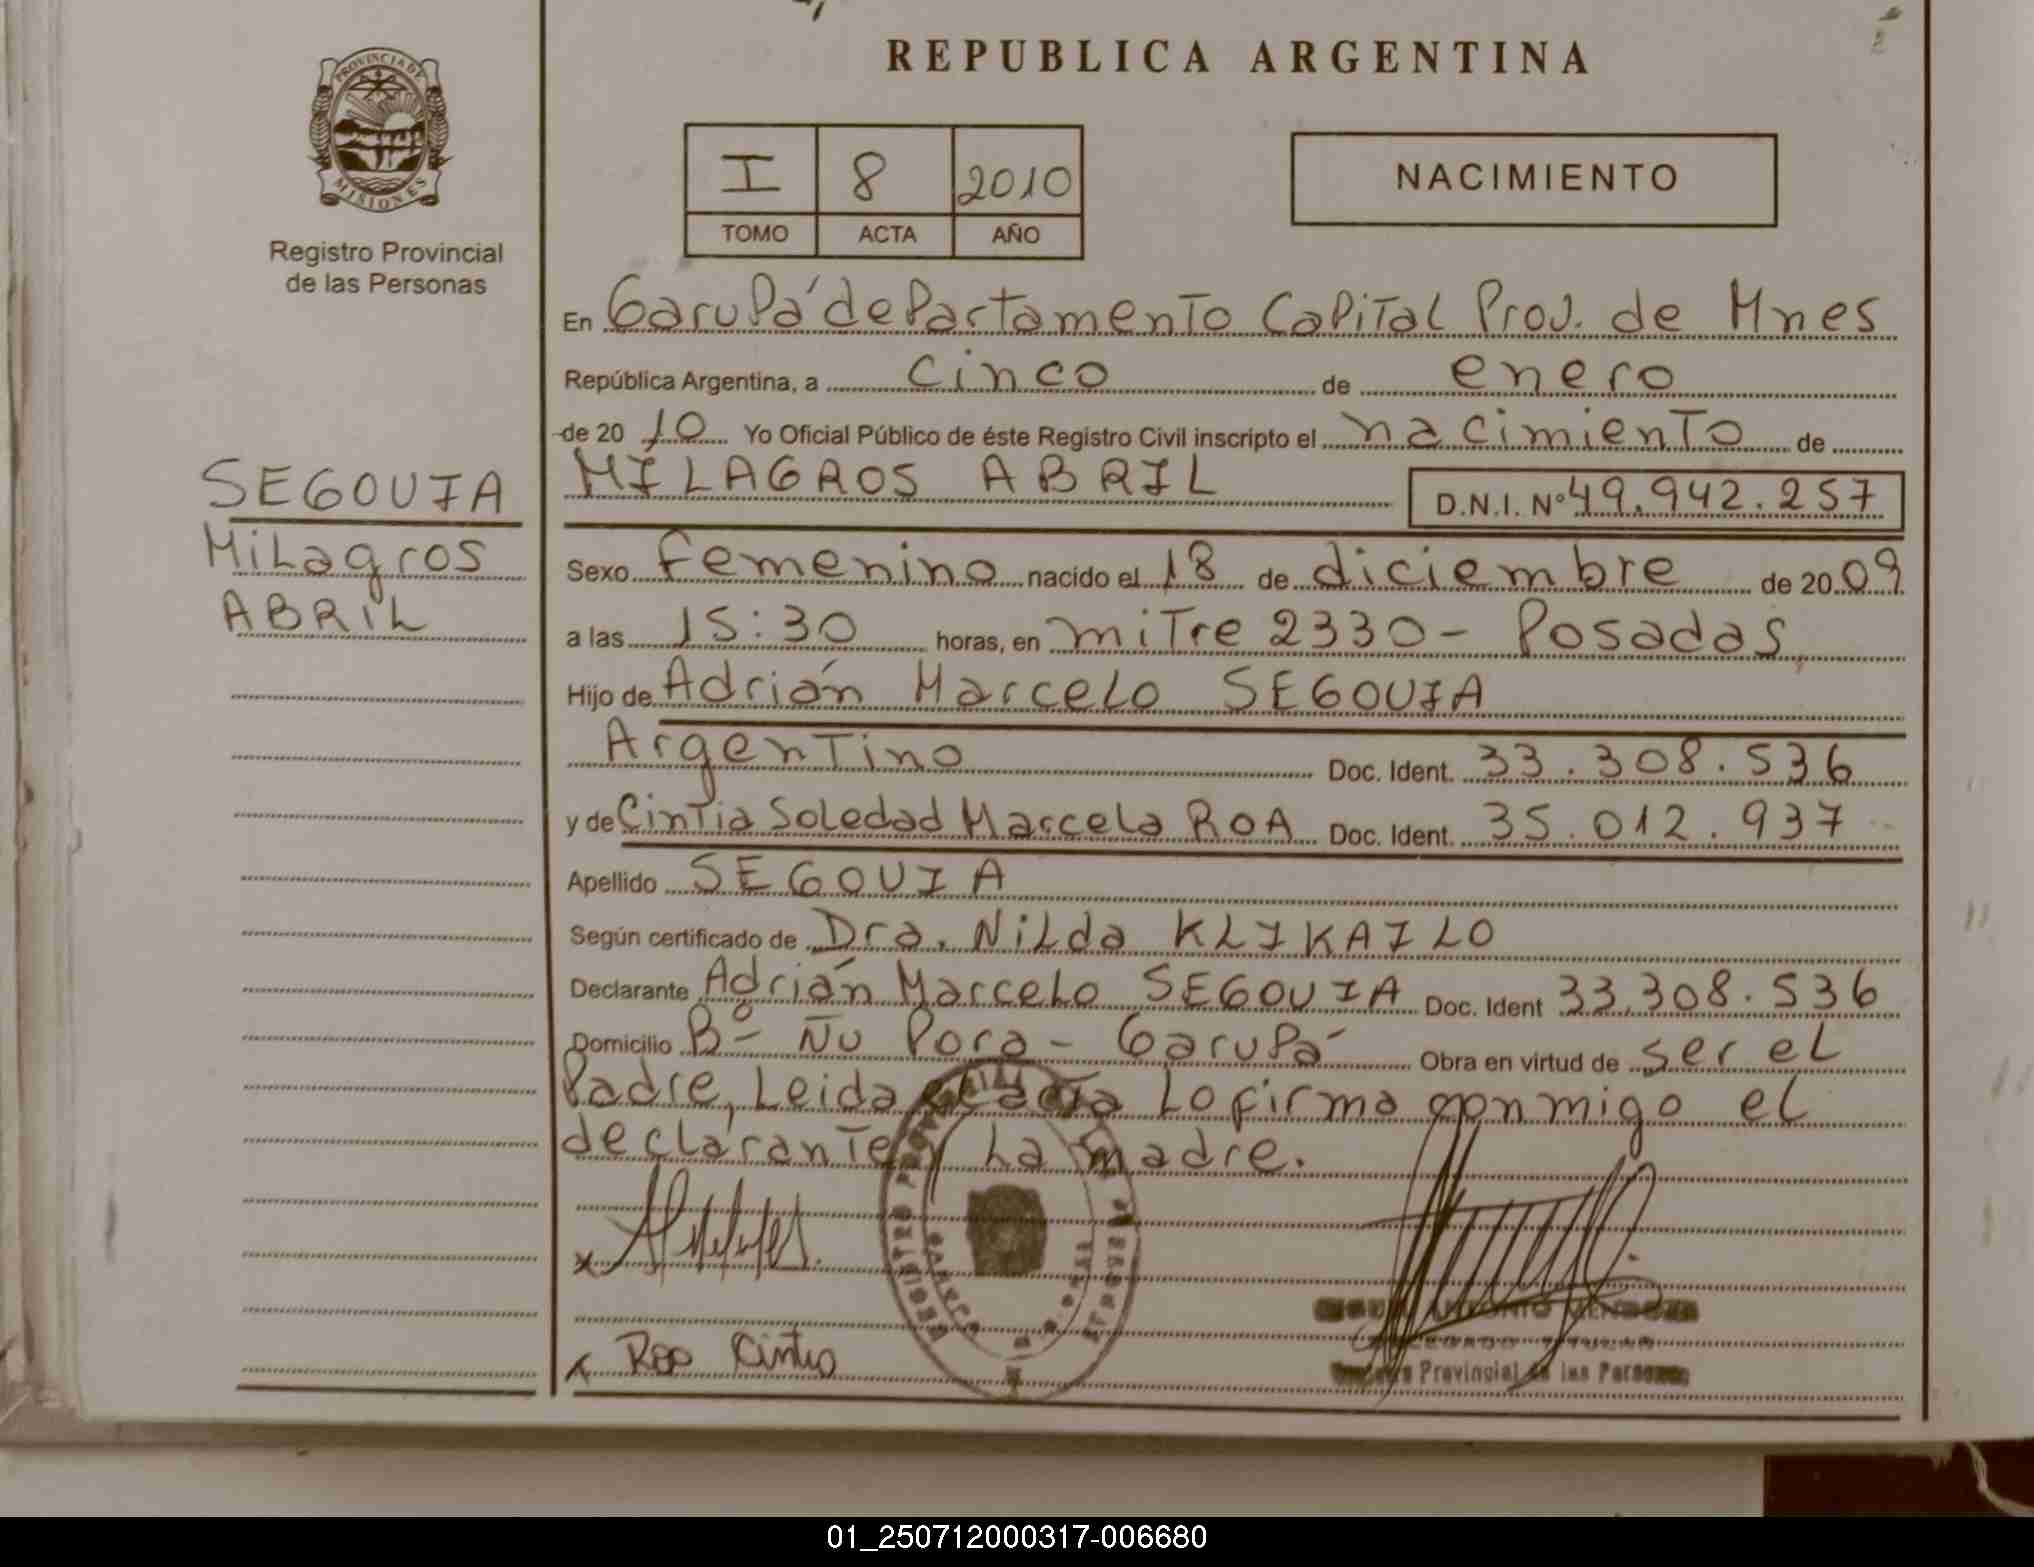 REPUBLICA ARGENTINA
PROVINCIA DE
MISIONES
Registro Provincial
de las Personas
I 8 2010
TOMO ACTA AÑO
NACIMIENTO
SEGOVIA
Milagros
ABRIL
En Garupá departamento Capital Prov. de Mnes
República Argentina, a cinco de enero
de 20 10 Yo Oficial Público de éste Registro Civil inscripto el nacimiento de
MILAGROS ABRIL D.N.I. Nº 49.942.257
Sexo femenino nacido el 18 de diciembre de 20 09
a las 15:30 horas, en mitre 2330 - Posadas,
Hijo de Adrián Marcelo SEGOVIA
Argentino Doc. Ident. 33.308.536
y de Cintia Soledad Marcela ROA Doc. Ident. 35.012.937
Apellido SEGOVIA
Según certificado de Dra. Nilda KLIKAILO
Declarante Adrián Marcelo SEGOVIA Doc. Ident 33.308.536
Domicilio Bº - Ñu Pora - Garupá Obra en virtud de ser el
Padre, Leida el acta Lo firma conmigo el
declarante y La madre.
REGISTRO PROVINCIAL DE LAS PERSONAS
ANTONIO MENDOZA
DELEGADO TITULAR
Provincial de las Personas
x Roa Cintia
01_250712000317-006680